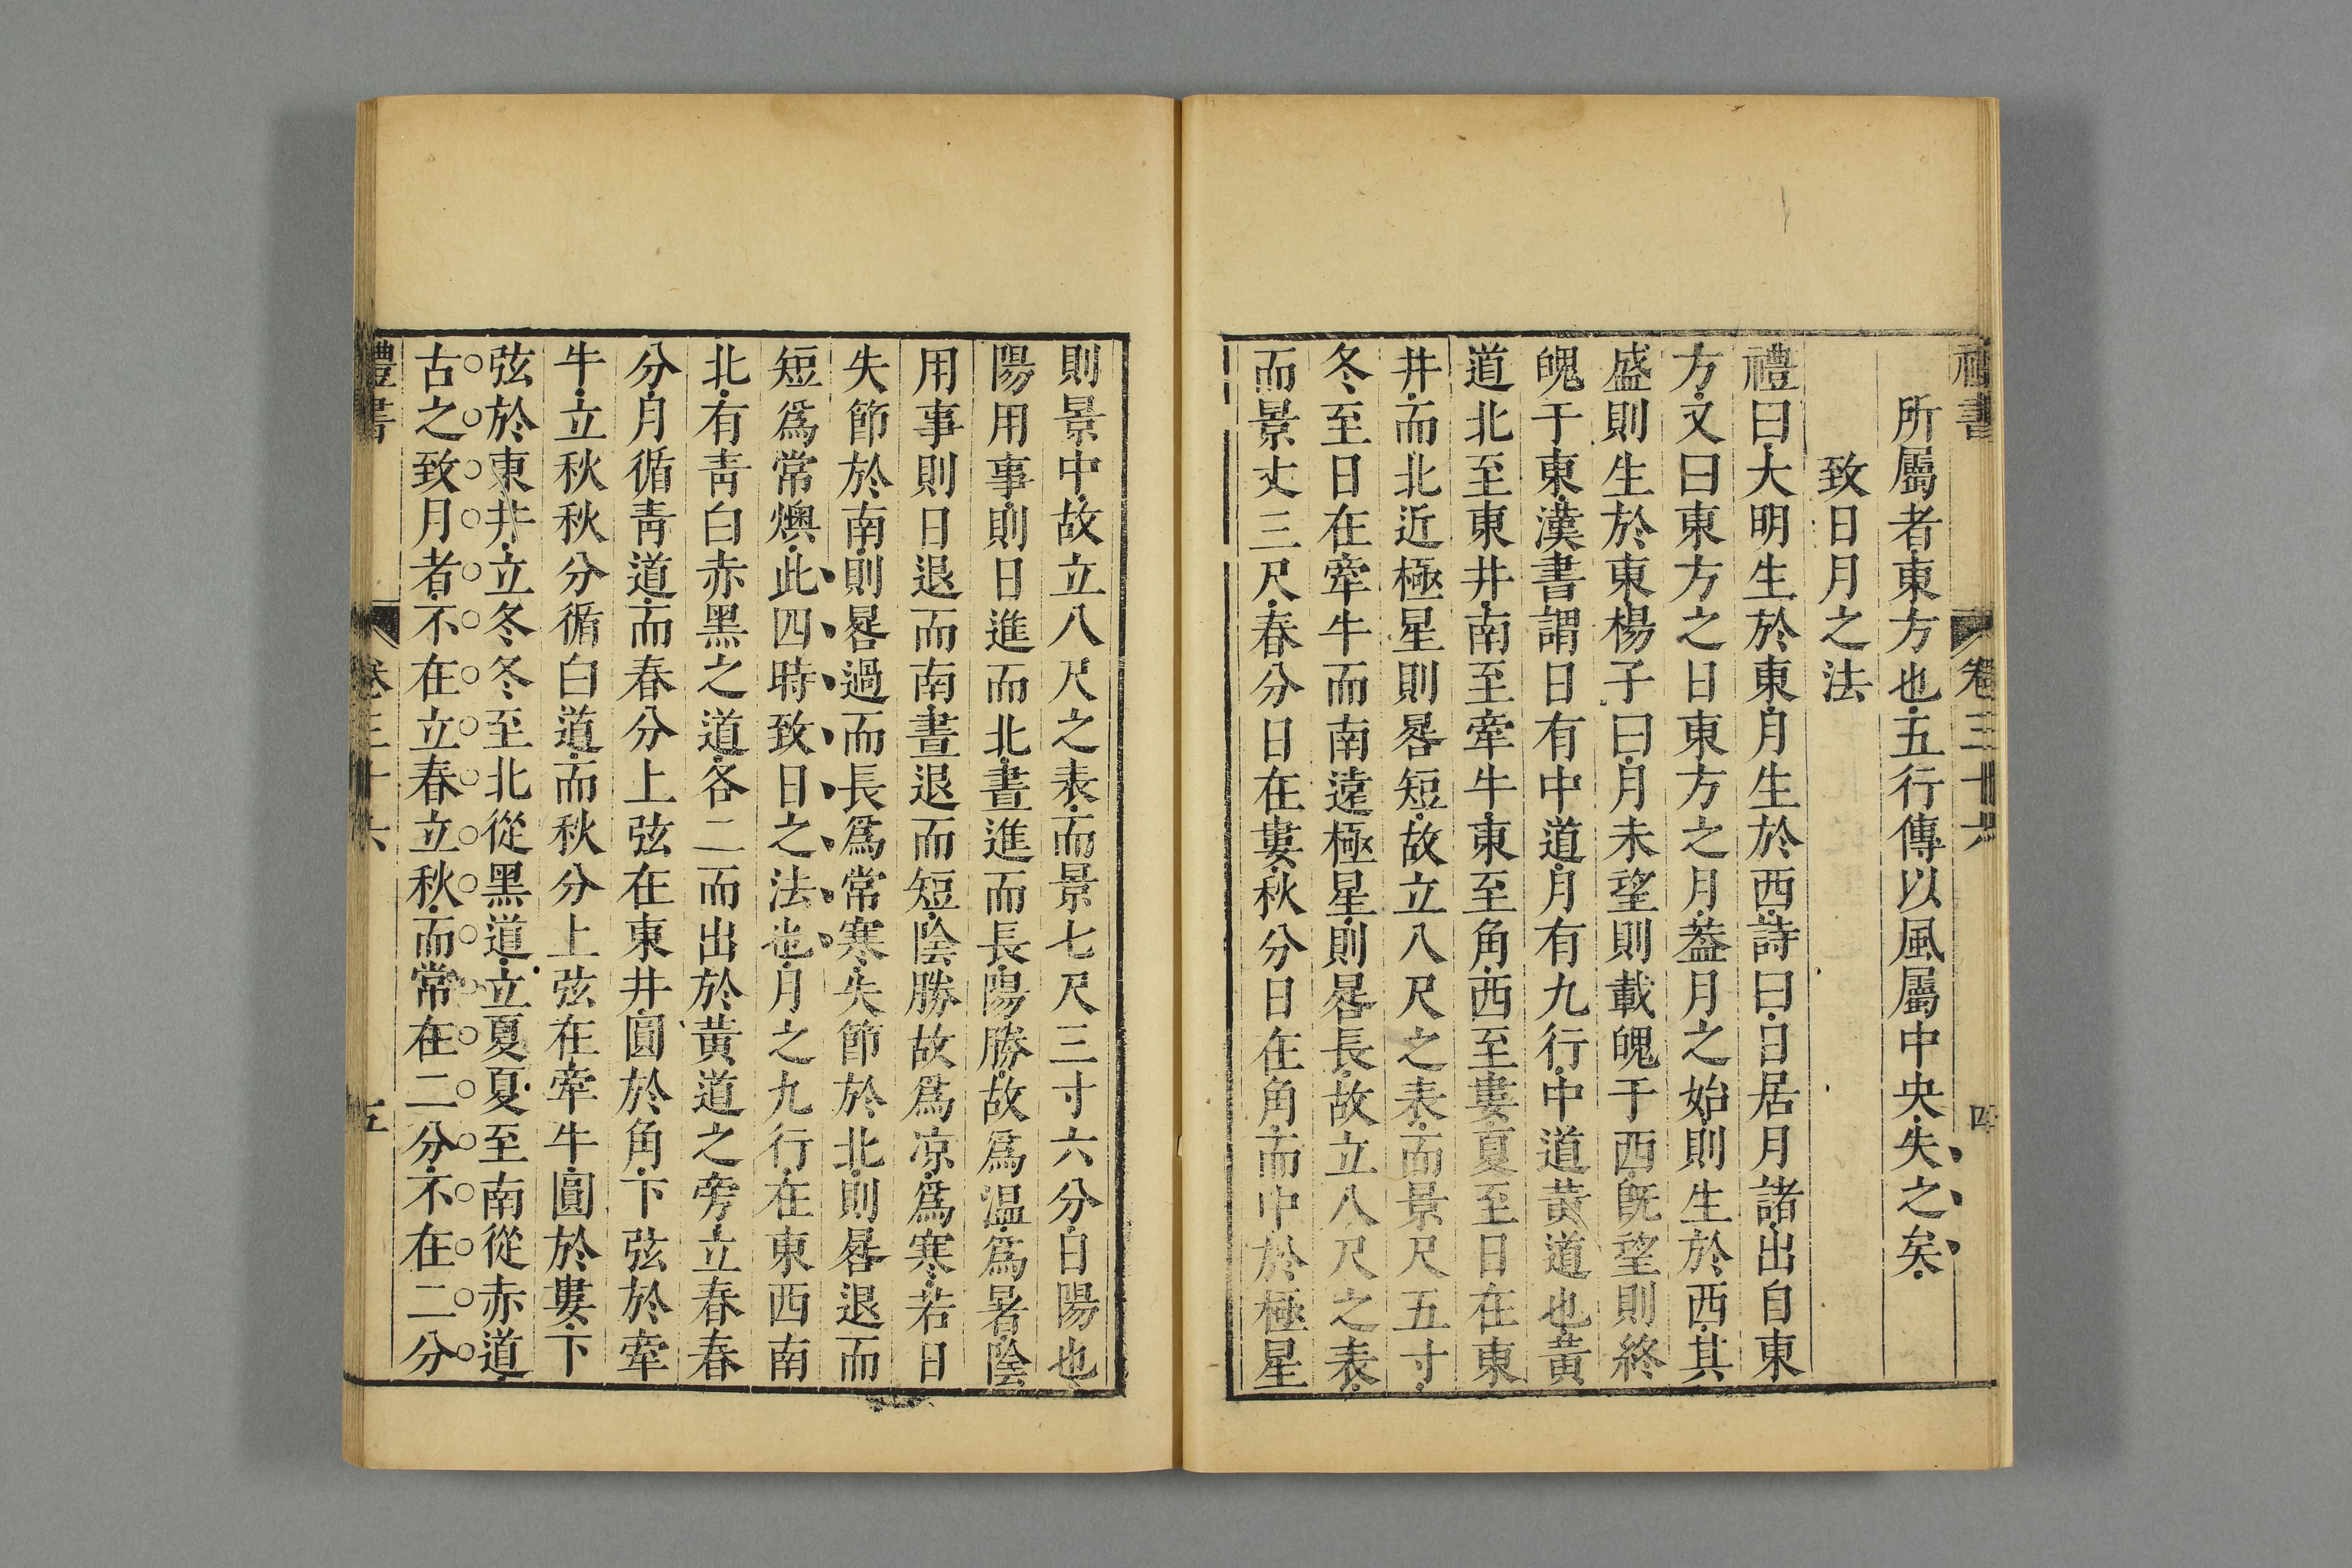 禮書 卷三十六 四
所屬者東方也五行傳以風屬中央失之矣
致日月之法
禮曰大明生於東月生於西詩曰日居月諸出自東
方又曰東方之日東方之月葢月之始則生於西其
盛則生於東楊子曰月未望則載魄于西旣望則終
魄于東漢書謂日有中道月有九行中道黃道也黃
道北至東井南至牽牛東至角西至婁夏至日在東
井而北近極星則晷短故立八尺之表而景尺五寸
冬至日在牽牛而南遠極星則晷長故立八尺之表
而景丈三尺春分日在婁秋分日在角而中於極星
則景中故立八尺之表而景七尺三寸六分日陽也
陽用事則日進而北晝進而長陽勝故爲温爲暑陰
用事則日退而南晝退而短陰勝故爲凉爲寒若日
失節於南則晷過而長爲常寒失節於北則晷退而
短爲常燠此四時致日之法也月之九行在東西南
北有靑白赤黑之道各二而出於黃道之旁立春春
分月循靑道而春分上弦在東井圓於角下弦於牽
牛立秋秋分循白道而秋分上弦在牽牛圓於婁下
弦於東井立冬冬至北從黑道立夏夏至南從赤道
古之致月者不在立春立秋而常在二分不在二分
禮書 卷三十六 五